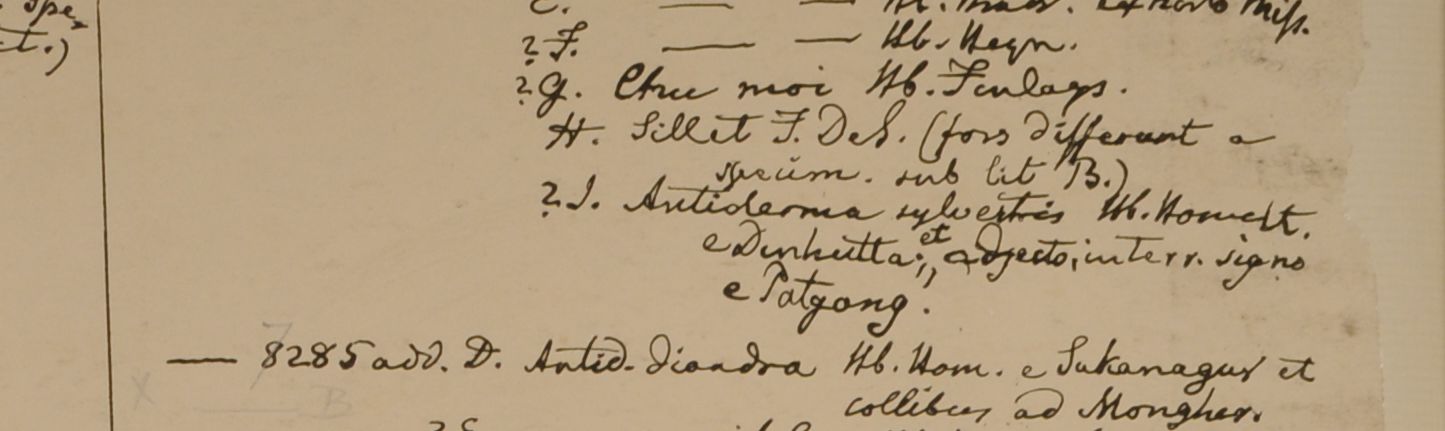 spe,
t.)
E. — — Hb. Madr. ex horto Miss.
? F. — — Hb. Heyn.
? G. Chu moi Hb. Finlays.
H. Sillet F. DeS. (fors differunt a
specim. sub lit B.)
? I. Antidesma sylvestris Hb. Hamilt.
e Dinhutta; et adjecto, interr. signo
e Patgong.
— 8285 add. D. Antid. diandra Hb. Ham. e Sukanagur et
collibus ad Mongher.